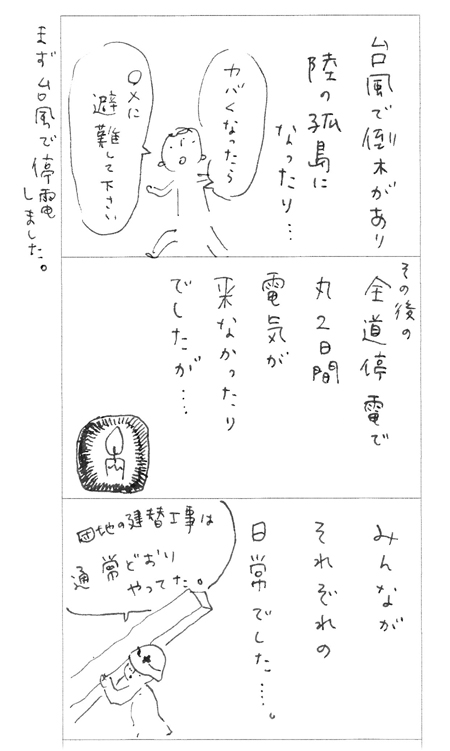 台風で倒木があり
陸の孤島に
なったり…
カバくなったら
○×に
避難して下さい
まず台風で停電
しました。
その後の
全道停電で
丸2日間
電気が
来なかったり
でしたが…
みんなが
それぞれの
日常でした…。
団地の建替工事は
通常どおり
やってた。